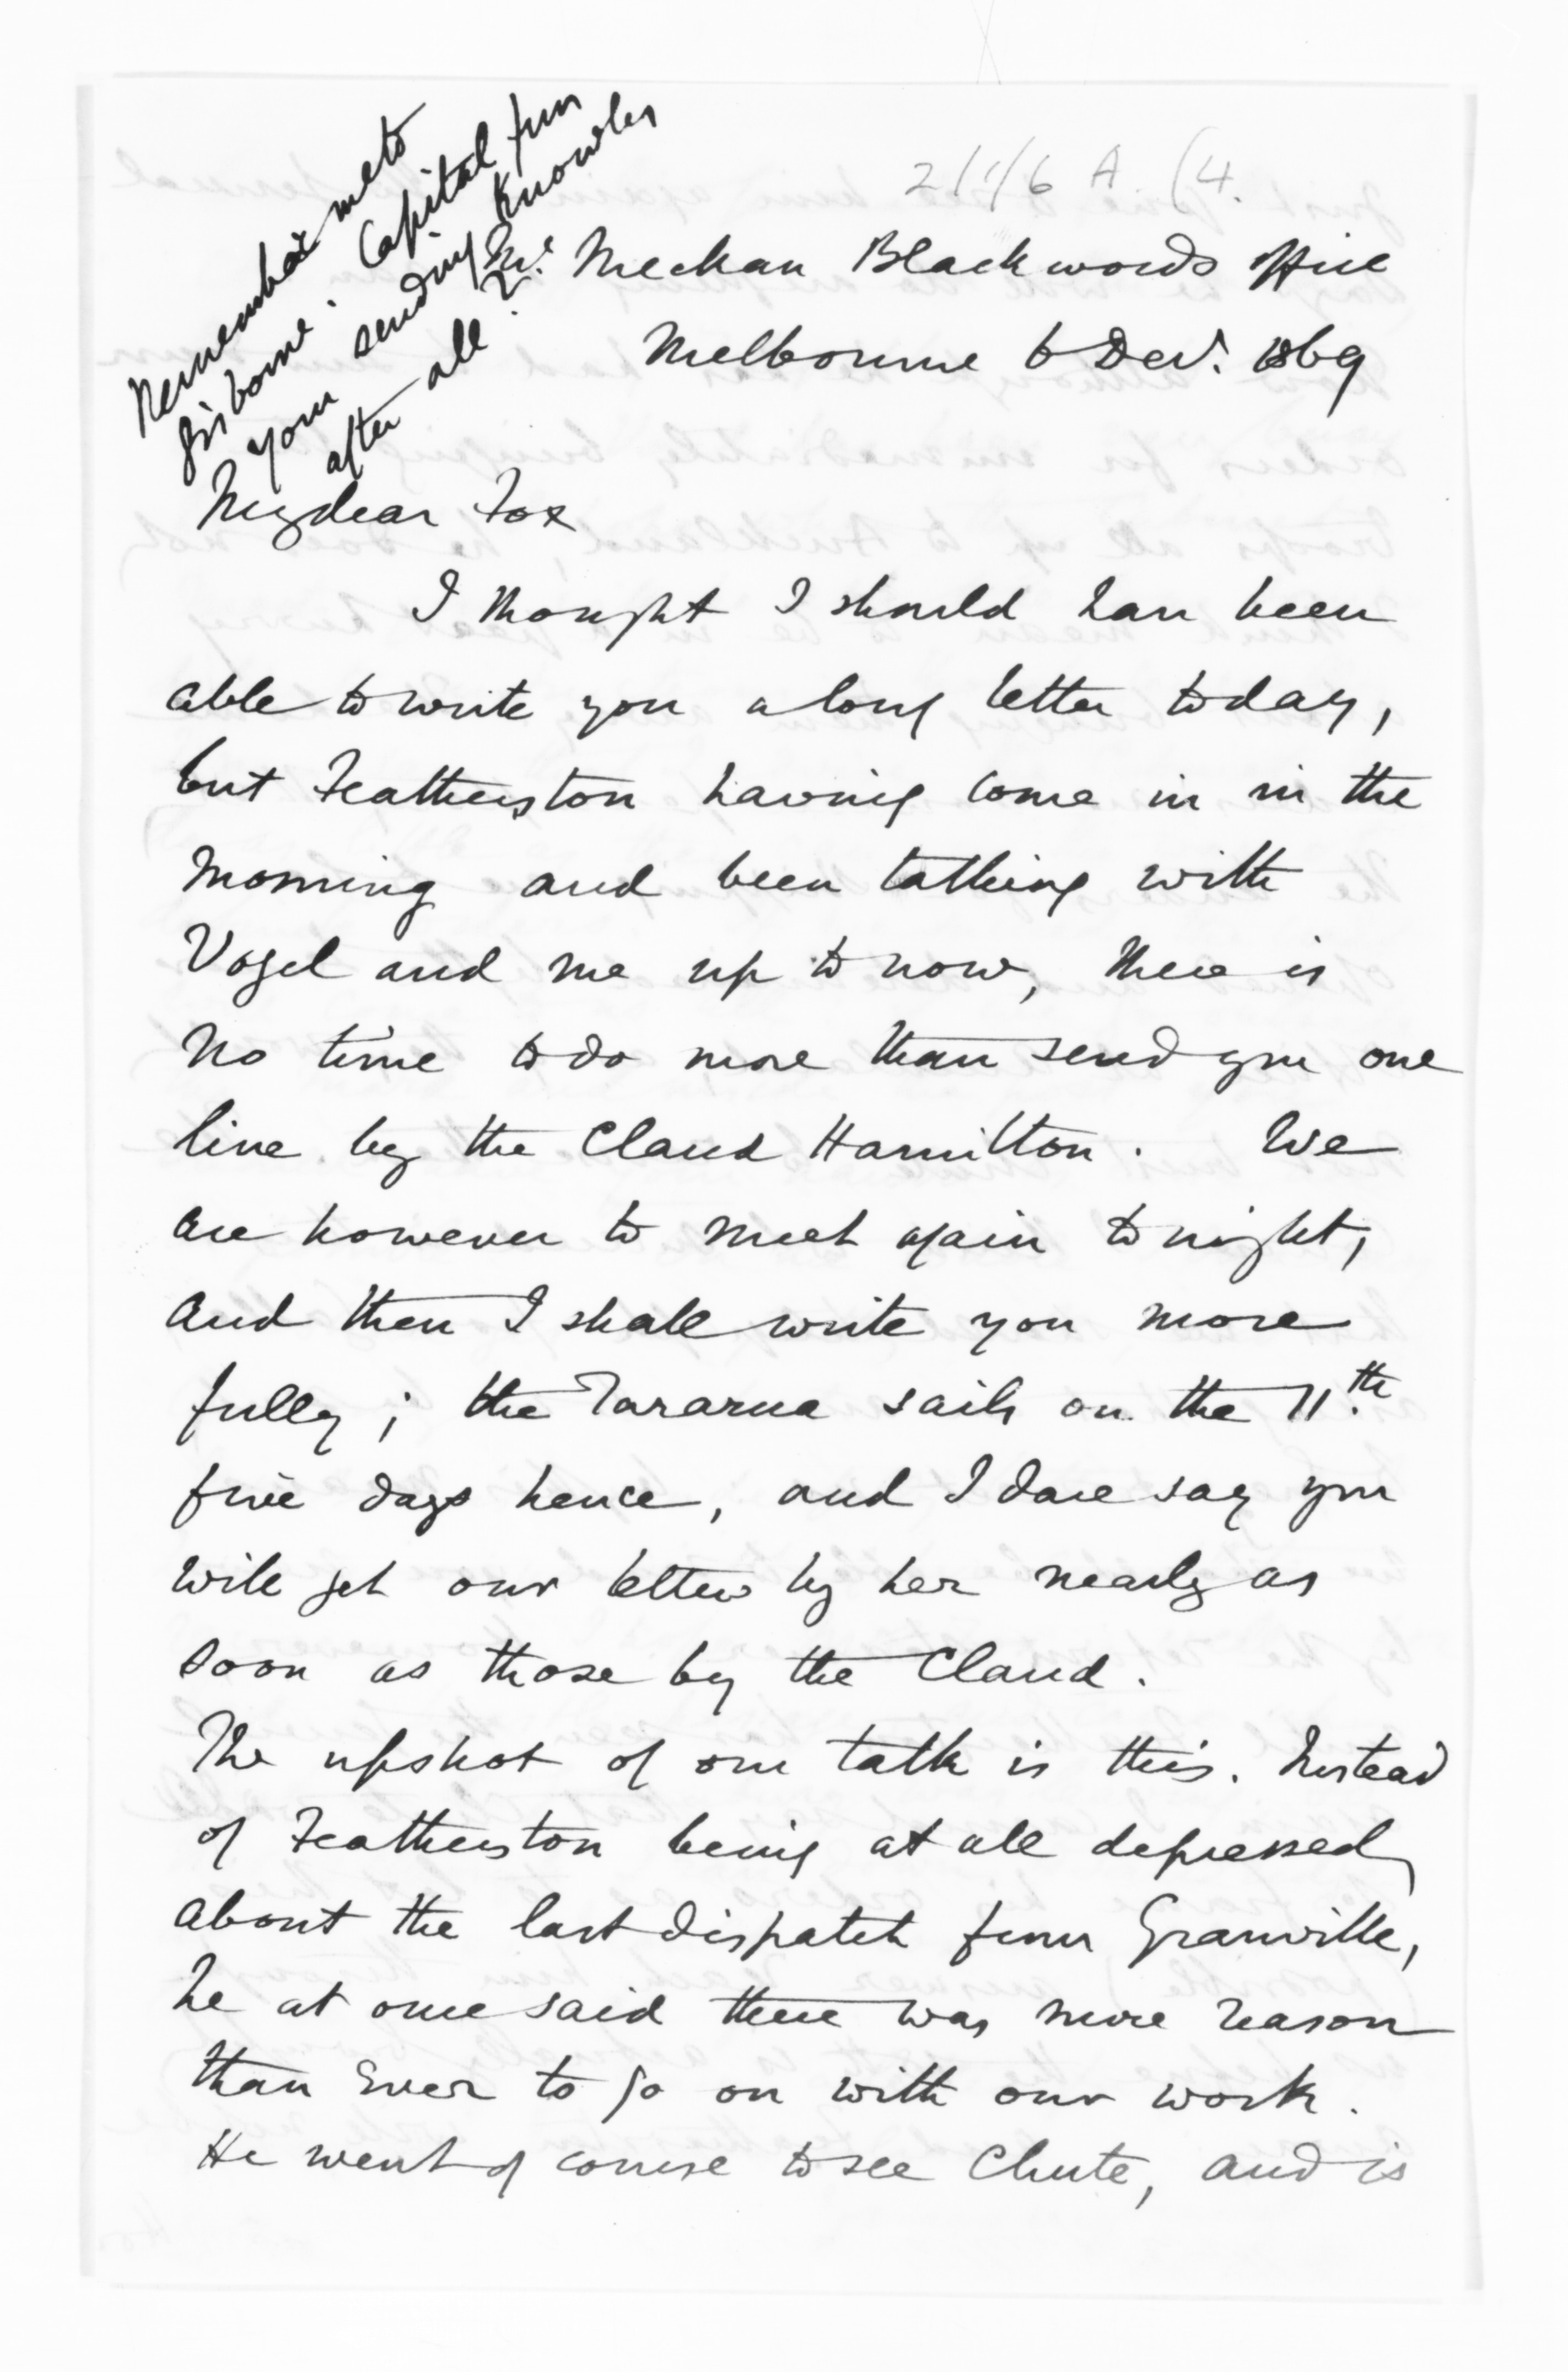 Remember me to
Gisborne. Capital fun
your sending Knowles
after all.
2/1/6 A. (4.
McMeckan Blackwoods Office
Melbourne 6 Decr. 1869
My dear Fox
I thought I should have been
able to write you a long letter today,
but Featherston having come in in the
morning and been talking with
Vogel and me up to now, there is
no time to do more than send you one
line by the Claud Hamilton. We
are however to meet again tonight,
and then I shall write you more
fully; the Tararua sails on the 11th.
five days hence, and I dare say you
will get our letters by her nearly as
soon as those by the Claud.
The upshot of our talk is this. Instead
of Featherston being at all depressed
about the last dispatch from Granville,
he at once said there was more reason
than ever to go on with our work.
He went of course to see Chute, and is